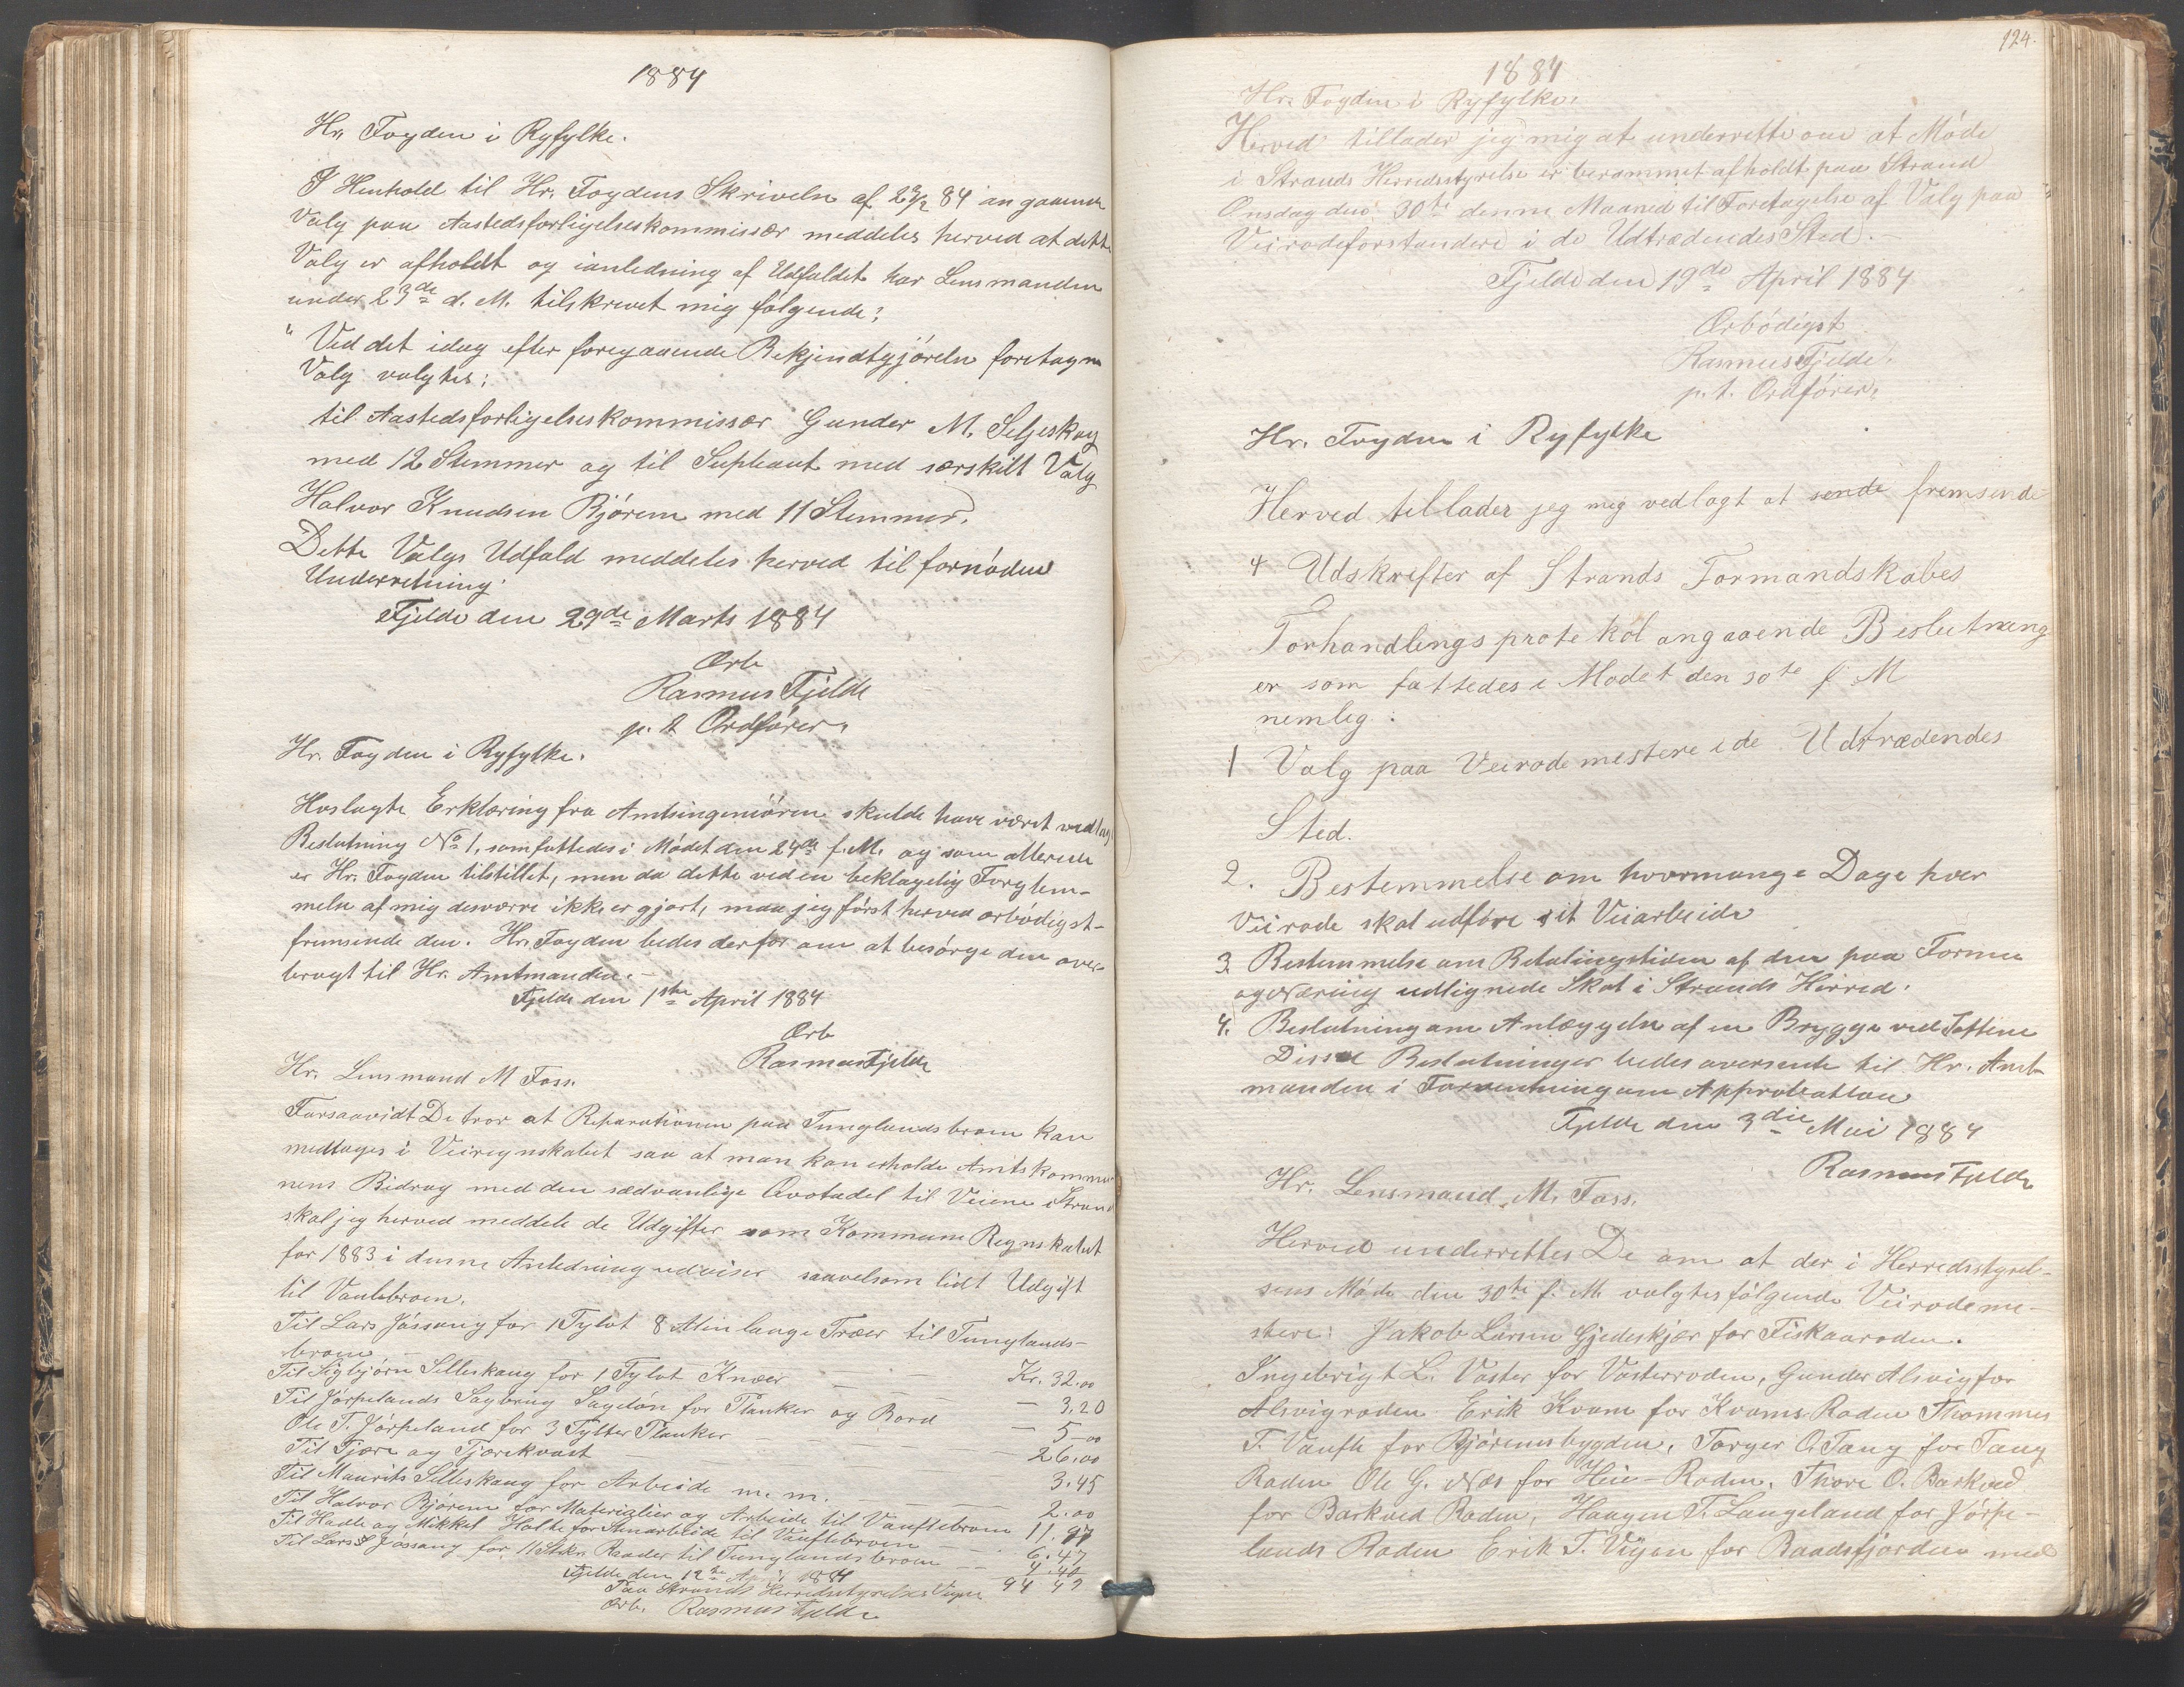 1884
Hr. Fogden i Ryfylke.
I Henhold til Hr. Fogdens Skrivelse af 23/2 84 angaaende
Valg paa Aastedsforligelseskommissær meddeles herved at dette
Valg er afholdt og ianledning af Udfaldet har Lensmanden
under 23de d. M. tilskrevet mig følgende:
"Ved det idag efter foregaaende Bekjendtgjørelse foretagne
Valg valgtes:
til Aastedsforligelseskommissær Gunder M. Seljeskog
med 12 Stemmer og til Supleant med særskilt Valg
Halvor Knudsen Bjøreim med 11 Stemmer.
Dette Valgs Udfald meddeles herved til fornøden
Underretning.
Fjelde den 29de Marts 1884
Ærb
Rasmus Fjelde
p. t Ordfører.
Hr. Fogden i Ryfylke.
Hoslagte Erklæring fra Amtsingeniøren skulde have været vedlagt
Beslutning No 1, som fattedes i Mødet den 24de f. M. og som allerede
er Hr. Fogden tilstillet, men da dette ved en beklagelig Forglem-
melse af mig desværre ikke er gjort, maa jeg først herved ærbødigst
fremsende den. Hr. Fogden bedes derfor om at besørge den over-
bragt til Hr. Amtmanden.-
Fjelde den 1ste April 1884
Ærb
Rasmus Fjelde
Hr. Lensmand M Foss.
Forsaavidt De tror at Reparationen paa Tunglandsbroen kan
medtages i Veiregnskabet saa at man kan erholde Amtskommu-
nens Bidrag med den sædvanlige Qvotadel til Veiene i Strand
skal jeg herved meddele de Udgifter som Kommune Regnskabet
for 1883 i denne Anledning udviser saavelsom lidt Udgift
til Vaulebroen.
Til Lars Jøssang for 1 Tylvt 8 Alin lange Træer til Tunglands-
broen - Kr. 32.00
Til Sigbjørn Selleskaug for 1 Tylvt Knæer - 3.20
Til Jørpelands Sagbrug Sagløn for Planker og Bord - 5-00
Ole T. Jørpeland for 3 Tylter Planker - 26.00
Til Tjære og Tjærekvast 3.45
Til Maurits Selleskaug for Arbeide m. m. 2.00
Til Halvor Bjøreim for Materialier og Arbeide til Vauflebroen 11.97
Til Kadle og Mikkel Holte for Smaarbeide til Vauflebroen - 6.47
Til Lars Jøssang for 11 Stkr Raader til Tunglandsbroen - 4.40
Fjelde den 12te April 1884 94 49
Paa Strands Herredsstyrelses Vegne
Ærb. Rasmus Fjelde
124.
1884
Hr. Fogden i Ryfylke.
Herved tillader jeg mig at underrette om at Møde
i Strands Herredsstyrelse er berammet afholdt paa Strand
Onsdag den 30te denne Maaned til Foretagelse af Valg paa
Veirodeforstandere i de Udtrædendes Sted.-
Fjelde den 19de April 1884
Ærbødigst
Rasmus Fjelde.
p. t. Ordfører.
Hr. Fogden i Ryfylke
Herved tillader jeg mig vedlagt at sende fremsende
4 Udskrifter af Strands Formandskabes
Forhandlingsprotekol angaaende Beslutning
er som fattedes i Mødet den 30te f M
nemlig:
1 Valg paa Veirodemestere i de Udtrædendes
Sted.
2. Bestemmelse om hvormange Dage hver
Veirode skal udføre sit Veiarbeide
3. Bestemmelse om Betalingstiden af den paa Formue
og Næring udlignede Skat i Strands Herred.
4. Beslutning om Anlæggelse af en Brygge ved Toftene
Disse Beslutninger bedes oversendte til Hr. Amt-
manden i Forventning om Approbation
Fjelde den 3die Mai 1884
Rasmus Fjelde
Hr. Lensmand M. Foss.
Herved underrettes De om at der i Herredsstyrel-
sens Møde den 30te f. M. valgtes følgende Veirodeme-
stere: Jakob Larsen Gjedeskjær for Fiskaaroden.
Ingebrigt L. Vaster for Vasterroden, Gunder Alsvig for
Alsvigroden Erik Kvam for Kvams Roden Thommes
T. Vaufle for Bjøreimsbygden, Torger O. Tang for Tang
Roden Ole G. Næs for Heie-Roden. Thore O. Barkved
for Barkved Roden, Haagen T. Langeland for Jørpe-
lands Roden Erik T. Vigen for Raadsfjorden med